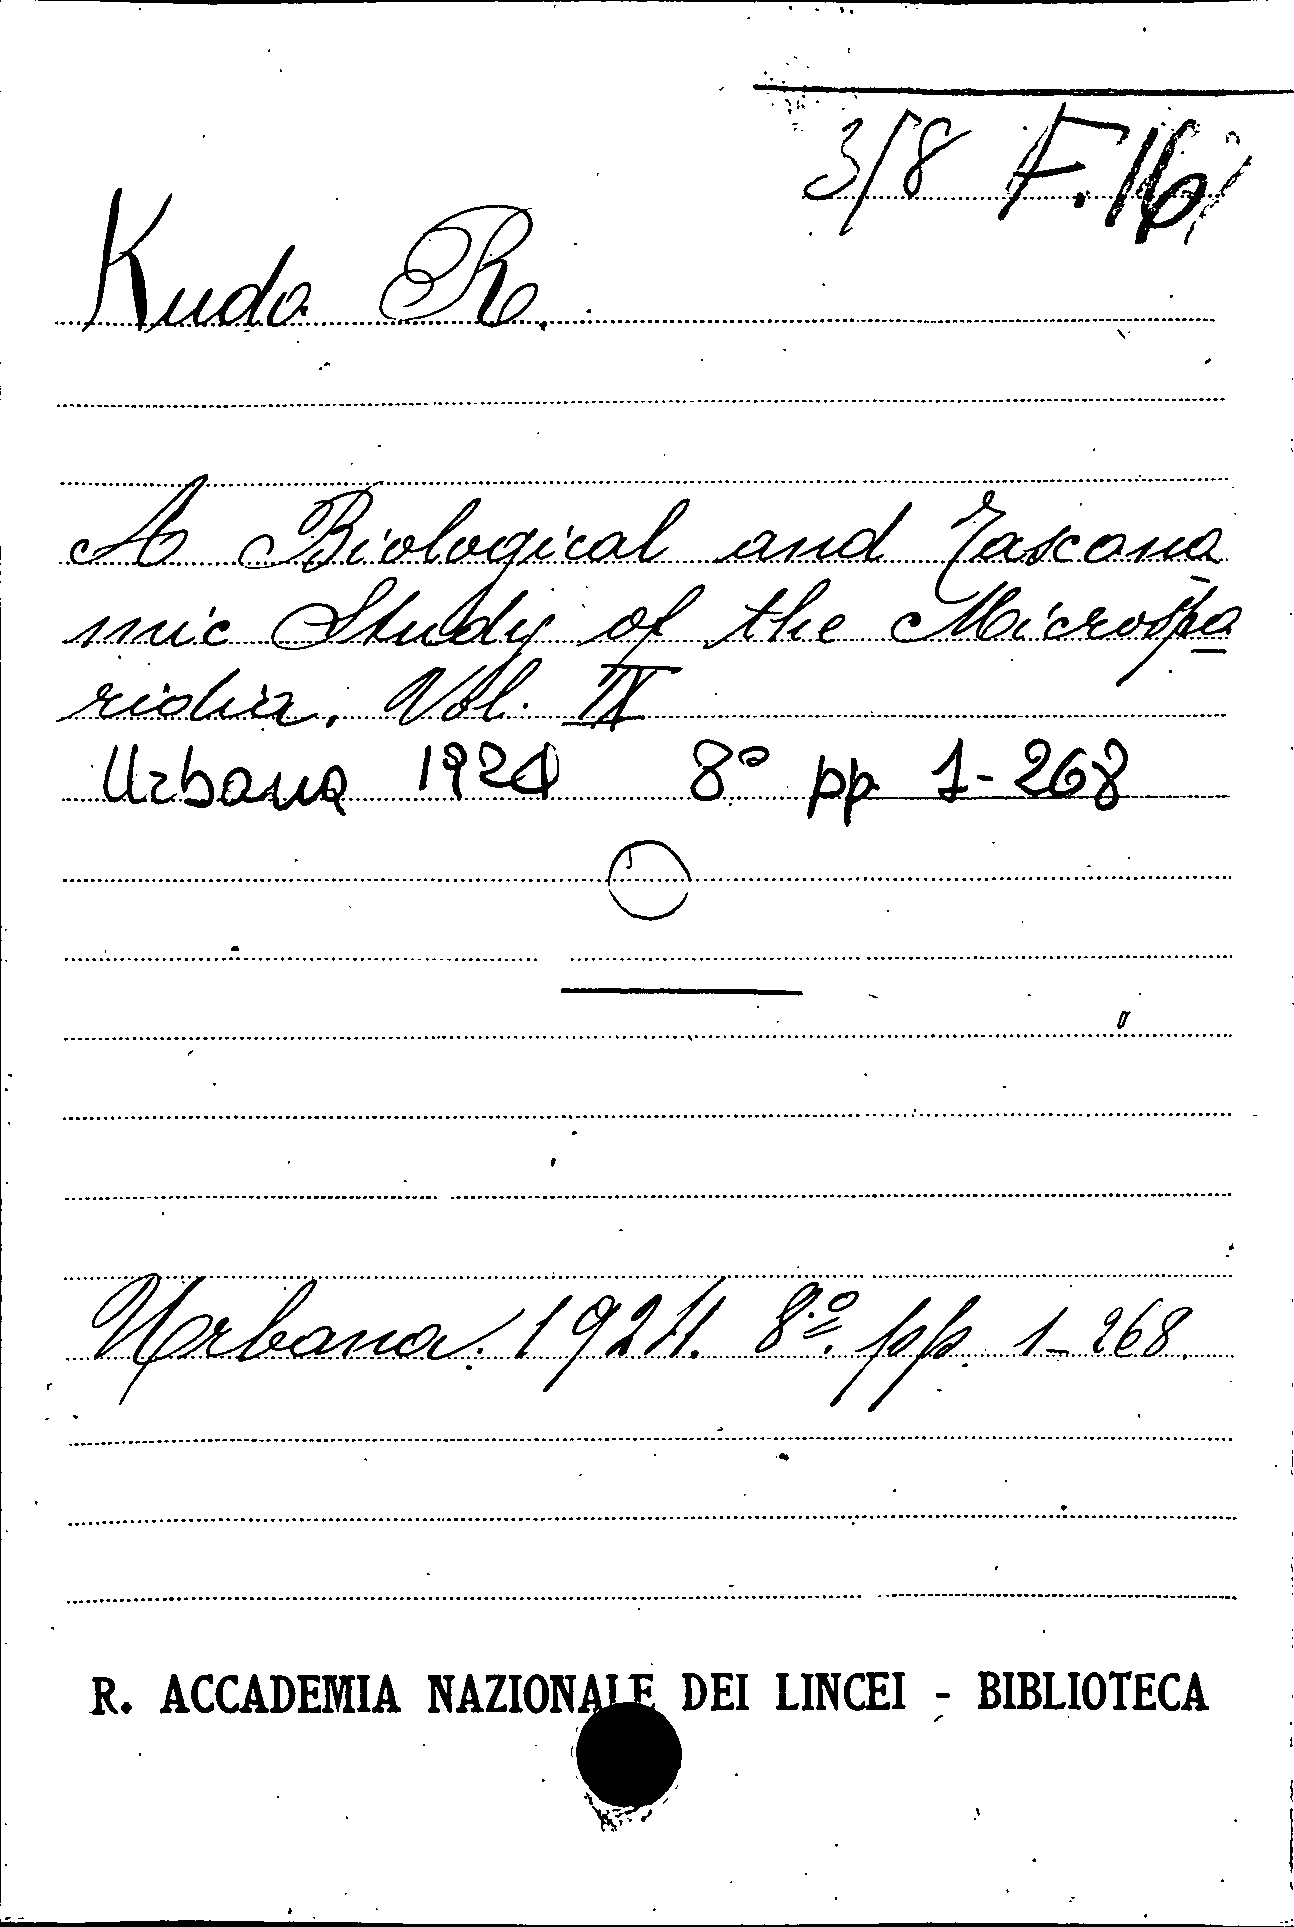 3/8 F. 16
Kudo R.
A Biological and Tascona
mic Study of the Microspo
ridia. Vol. IX
Urbana 1924 8° pp. 1-268
Urbana. 1924. 8º. pp. 1-268.
R. ACCADEMIA NAZIONALE DEI LINCEI - BIBLIOTECA